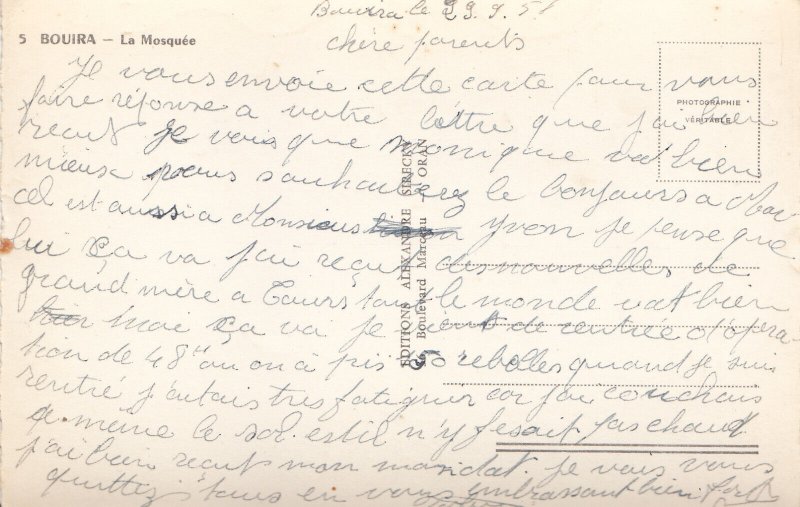 Bouira le 29.9.5
5 BOUIRA — La Mosquée
chère parents
Je vous envoie cette carte pour vous
PHOTOGRAPHIE
VÉRITABLE
faire réponse a votre lettre que j'ai bien
recut je vois que monique vat bien
mieux vous souhaiterez le bonjours a
cel est aussi a Monsieur Yvon je pense que
lui ça va j'ai reçut des nouvelles de
grand mère a Tours tout le monde vat bien
moi ça va je vient de rentrée d'opéra-
tion de 48h ou on a pis 50 rebelles quand je suis
rentré j'etais tres fatiguer car j'ai couchais
a même le sol et il n'y fesait pas chaud
j'ai bien recut mon mandat. je vais vous
quittez tous en vous embrassant bien fort
EDITIONS ALEXANDRE SIRECKY
Boulevard Marceau ORAN